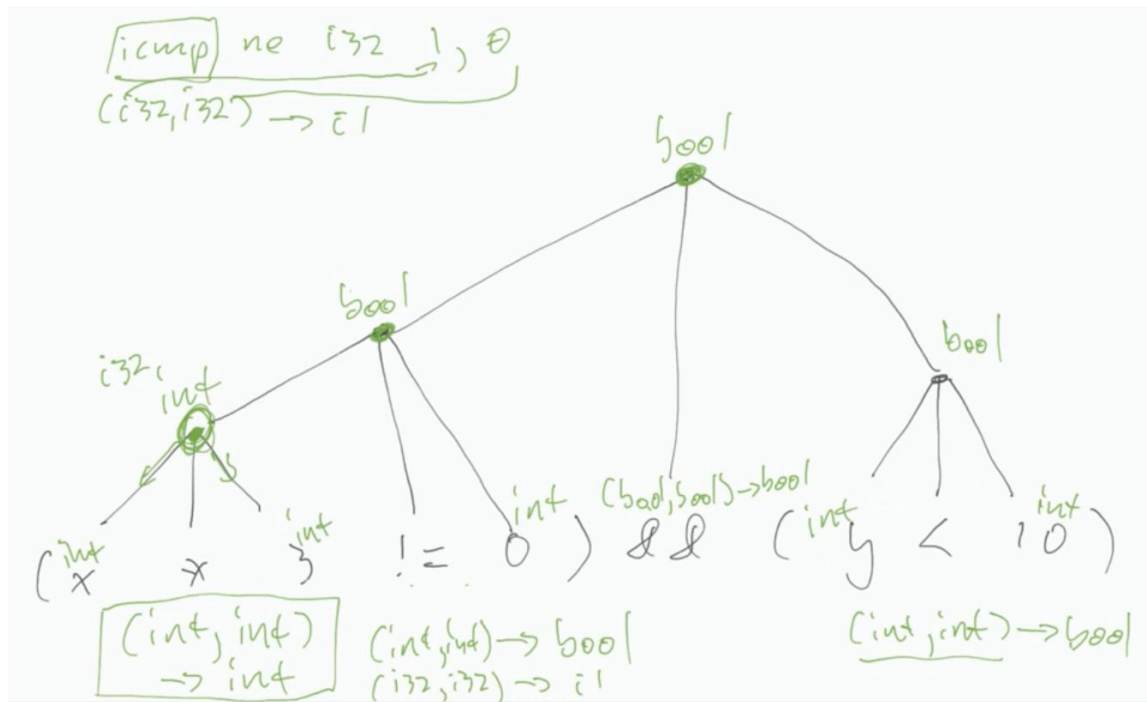 icmp ne i32 1, 0
(i32, i32) → i1
bool
bool
bool
i32,
int
int int int (bool, bool) → bool int int
(x * 3 != 0) && (y < 10)
(int, int) (int, int) → bool (int, int) → bool
→ int (i32, i32) → i1